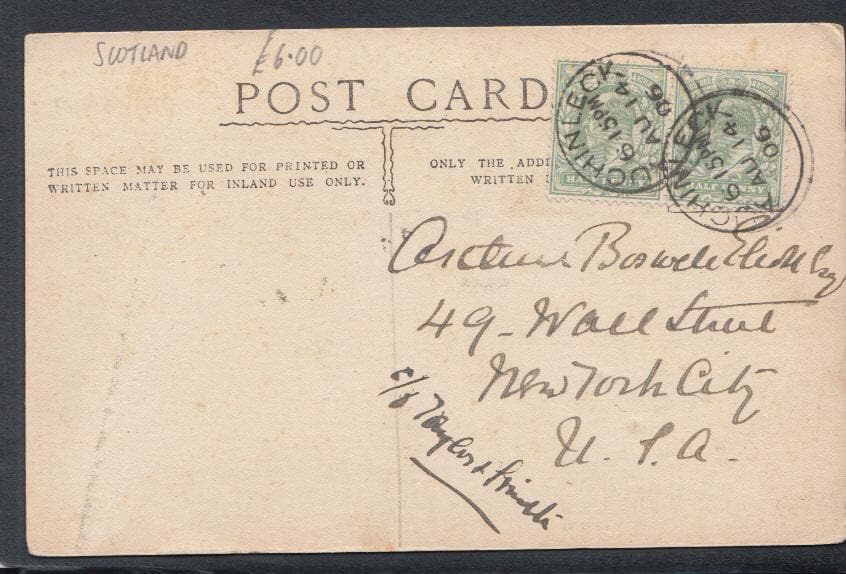 SCOTLAND £6.00
POST CARD
THIS SPACE MAY BE USED FOR PRINTED OR
WRITTEN MATTER FOR INLAND USE ONLY.
ONLY THE ADD
WRITTEN
AUCHINLECK
6·15PM
AU 14
06
AUCHINLECK
6·15PM
AU 14
06
HALF PENNY
Arthur Boswell Eliott Esq
49 - Wall Street
New York City
U. S. A.
c/o Taylor &